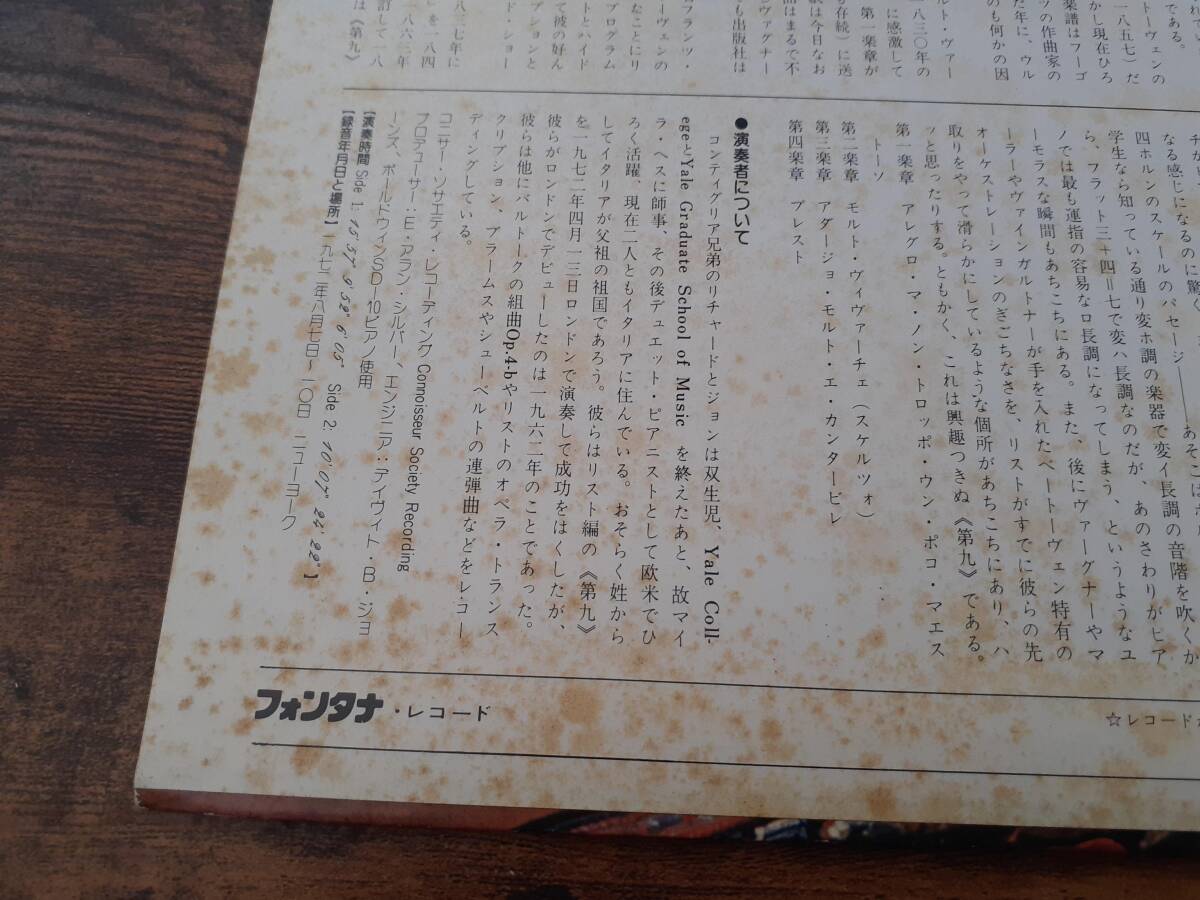 チが
なる感じになるのに驚
四ホルンのスケールのパセージ――あそこは
学生なら知っている通り変ホ調の楽器で変イ長調の音階を吹くか
ら、フラット三十四＝七で変ハ長調なのだが、あのさわりがピア
ノでは最も運指の容易なロ長調になってしまう、というようなユ
ーモラスな瞬間もあちこちにある。また、後にヴァーグナーやマ
ーラーやヴァインガルトナーが手を入れたベートーヴェン特有の
オーケストレーションのぎごちなさを、リストがすでに彼らの先
取りをやって滑らかにしているような個所があちこちにあり、ハ
ッと思ったりする。ともかく、これは興趣つきぬ《第九》である。
第一楽章　アレグロ・マ・ノン・トロッポ・ウン・ポコ・マエス
トーソ
第二楽章　モルト・ヴィヴァーチェ（スケルツォ）
第三楽章　アダージョ・モルト・エ・カンタービレ
第四楽章　プレスト
●演奏者について
コンティグリア兄弟のリチャードとジョンは双生児、Yale Coll-
egeとYale Graduate School of Music を終えたあと、故マイ
ラ・ヘスに師事、その後デュエット・ピアニストとして欧米でひ
ろく活躍、現在二人ともイタリアに住んでいる。おそらく姓から
してイタリアが父祖の祖国であろう。彼らはリスト編の《第九》
を一九七二年四月一三日ロンドンで演奏して成功をはくしたが、
彼らがロンドンでデビューしたのは一九六二年のことであった。
彼らは他にバルトークの組曲Op.4-bやリストのオペラ・トランス
クリプション、ブラームスやシューベルトの連弾曲などをレコー
ディングしている。
コニサー・ソサエティ・レコーディング Connoisseur Society Recording
プロデューサー：E・アラン・シルバー、エンジニア：デイヴィト・B・ジョ
ーンズ、ボールドウィンSD-10ピアノ使用
【演奏時間 Side 1: 15'57" 9'52" 6'05" Side 2: 10'07" 24'22"】
【録音年月日と場所】一九七二年八月七日～一〇日　ニューヨーク
れてい
である。
トーヴェンの
一八五七）だ
かし現在ひろ
楽譜はフーゴ
ツの作曲家の
だ年に、ウル
のも何かの因
ルト・ヴァー
一八三〇年の
に感激して
第一楽章が
存続）に送
訳は今日なお
品はまるで不
ヴァグナー
も出版社は
フランツ・
ーヴェンの
なことにリ
プログラム
トとハイド
て彼の好ん
プションと
ド・ショー
八三七年に
』を一八四
一八六三年
訂して一八
は《第九》
フォンタナ・レコード
☆レコード